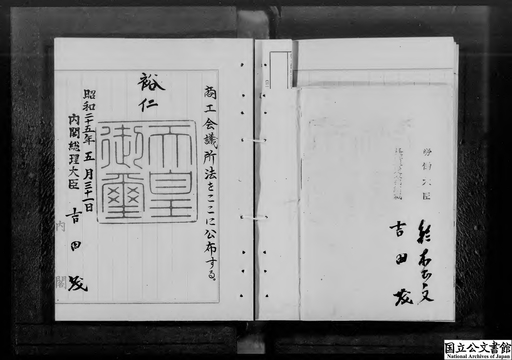 労働大臣 鈴木正文
吉田茂
商工会議所法をここに公布する。
裕仁
天皇御璽
昭和二十五年五月三十一日
内閣総理大臣 吉田茂
内閣
国立公文書館
National Archives of Japan